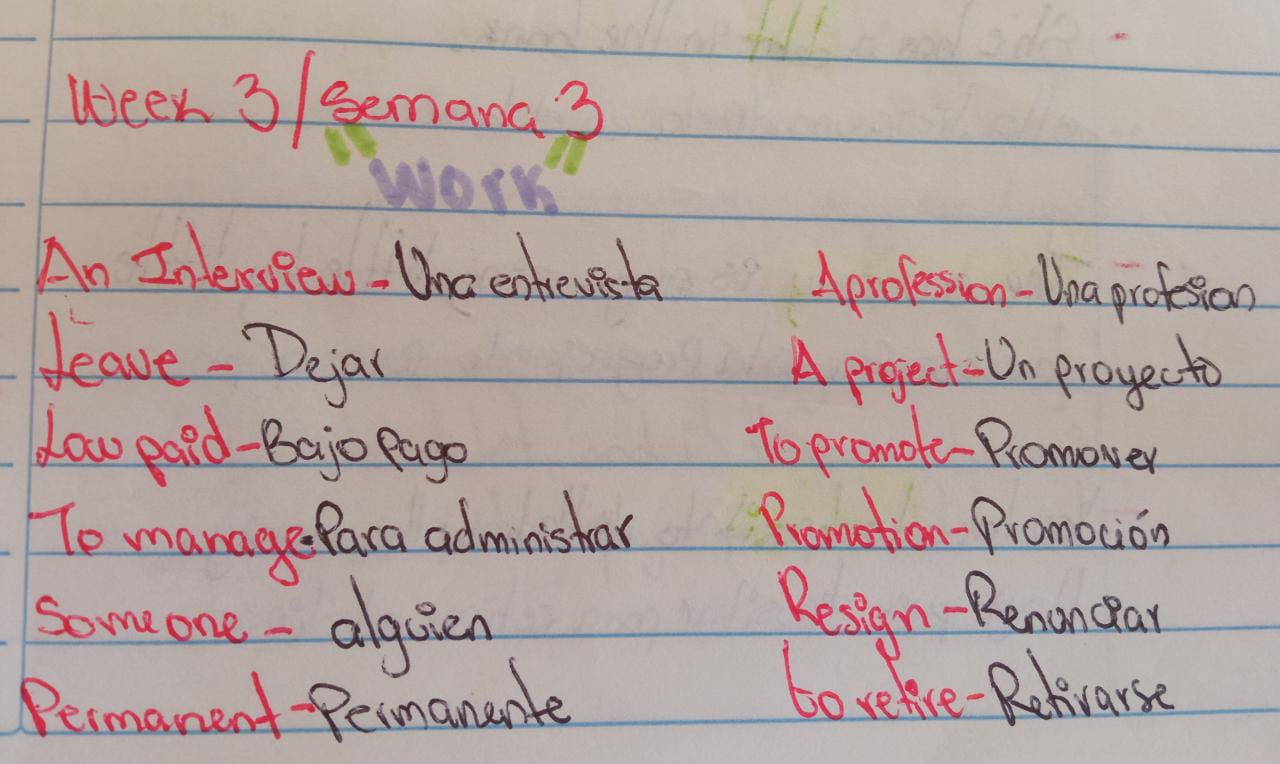 Week 3/Semana 3
"Work"
An Interview - Una entrevista
Leave - Dejar
Low paid - Bajo pago
To manage - Para administrar
Someone - alguien
Permanent - Permanente
A profession - Una profesion
A project - Un proyecto
To promote - Promover
Promotion - Promoción
Resign - Renunciar
to retire - Retirarse